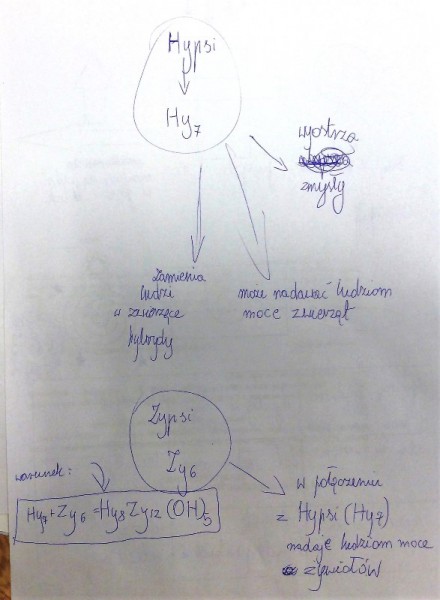 Hypsi
Hy7
wyostrza
zmysły
zamienia
ludzi
w zwierzęce
hybrydy
może nadawać ludziom
moce zwierząt
Zypsi
Zy6
warunek:
Hy7+Zy6=Hy8Zy12(OH)5
w połączeniu
z Hypsi (Hy7)
nadaje ludziom moce
żywiołów